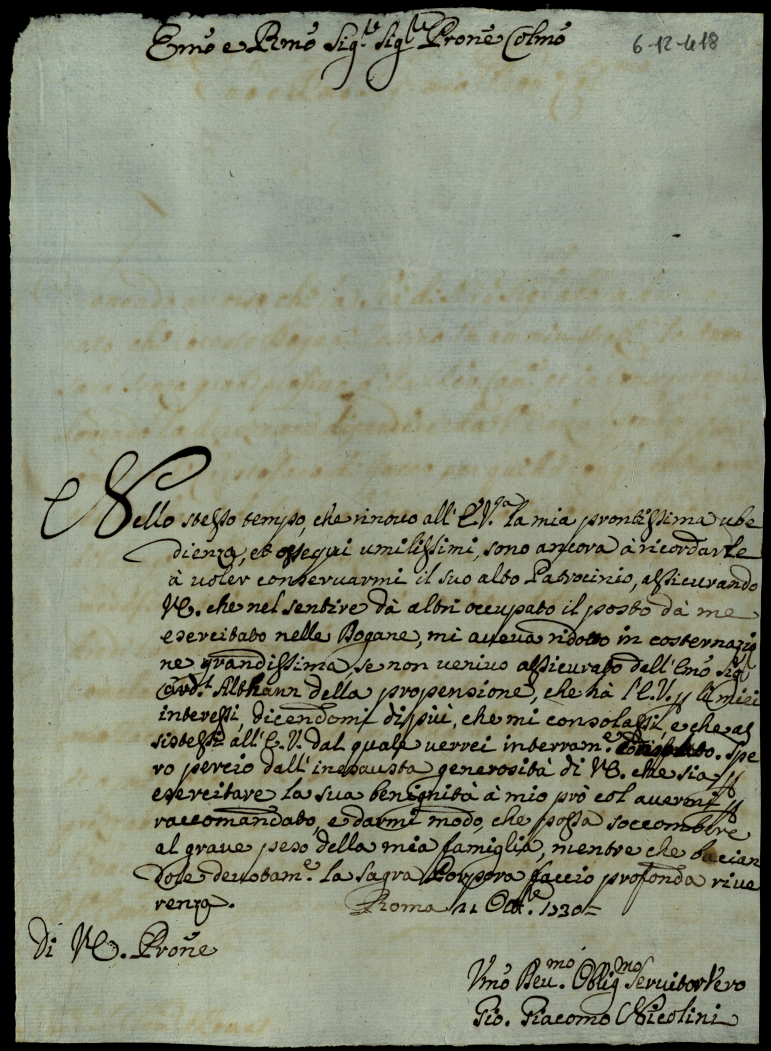 Emo e Rmo Sig.re Sig.re Prone Colmo
6-12-418
Nello stesso tempo, che rinovo all' E.V.ra la mia prontissima ube
dienza, et ossequi umilissimi, sono ancora à ricordarle
à voler conservarmi il suo alto Patrocinio, assicurando
VE. che nel sentire dà altri occupato il posto dà me
esercitato nelle Dogane, mi aveva ridotto in costernazio
ne grandissima, se non venivo assicurato dell' Emo Sig.
Card.l Althann della propensione, che hà l' E.V. p li miei
interessi, dicendomi di più, che mi consolassi, e che as
sistessi all' E.V. dal quale verrei interram.e Spe
ro perciò dall' inesausta generosità di VE. che sia p
esercitare la sua benignità à mio prò col avermi p
raccomandato, e darmi modo, che possa soccombere
al grave peso della mia famiglia, mentre che bacian
dole devotam.e la sagra Porpora faccio profonda rive
renza. Roma 21 Ott.e 1730
Di VE. Prone
Vmo Dev.mo Oblig.mo Servitor Vero
Gio. Giacomo Nicolini